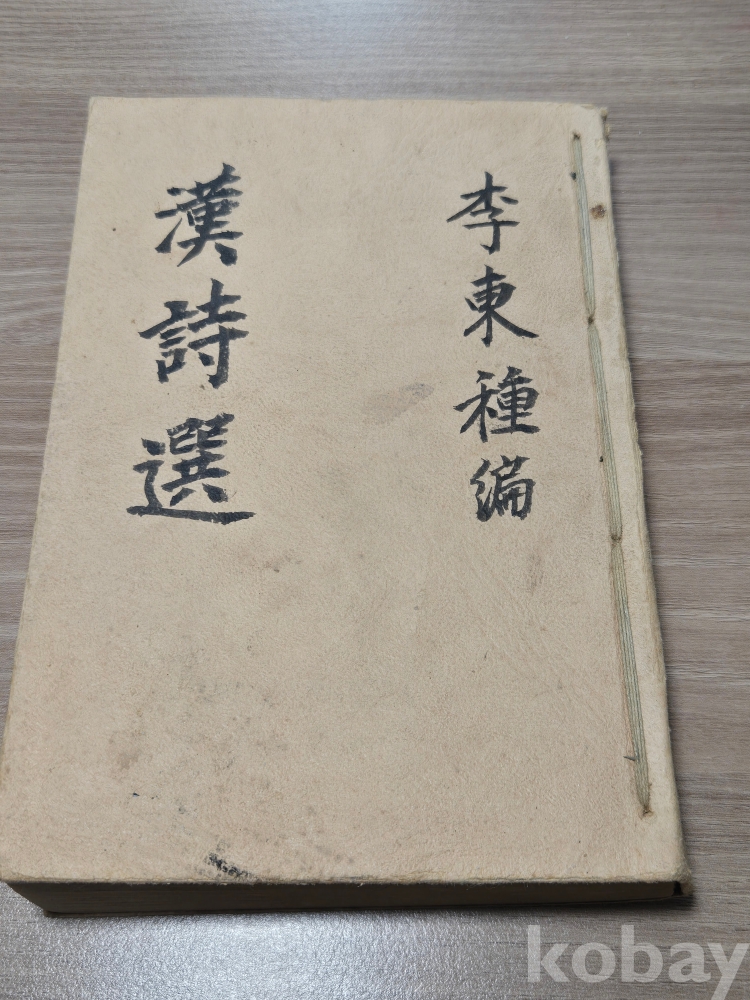 李東種編
漢詩選
kobay